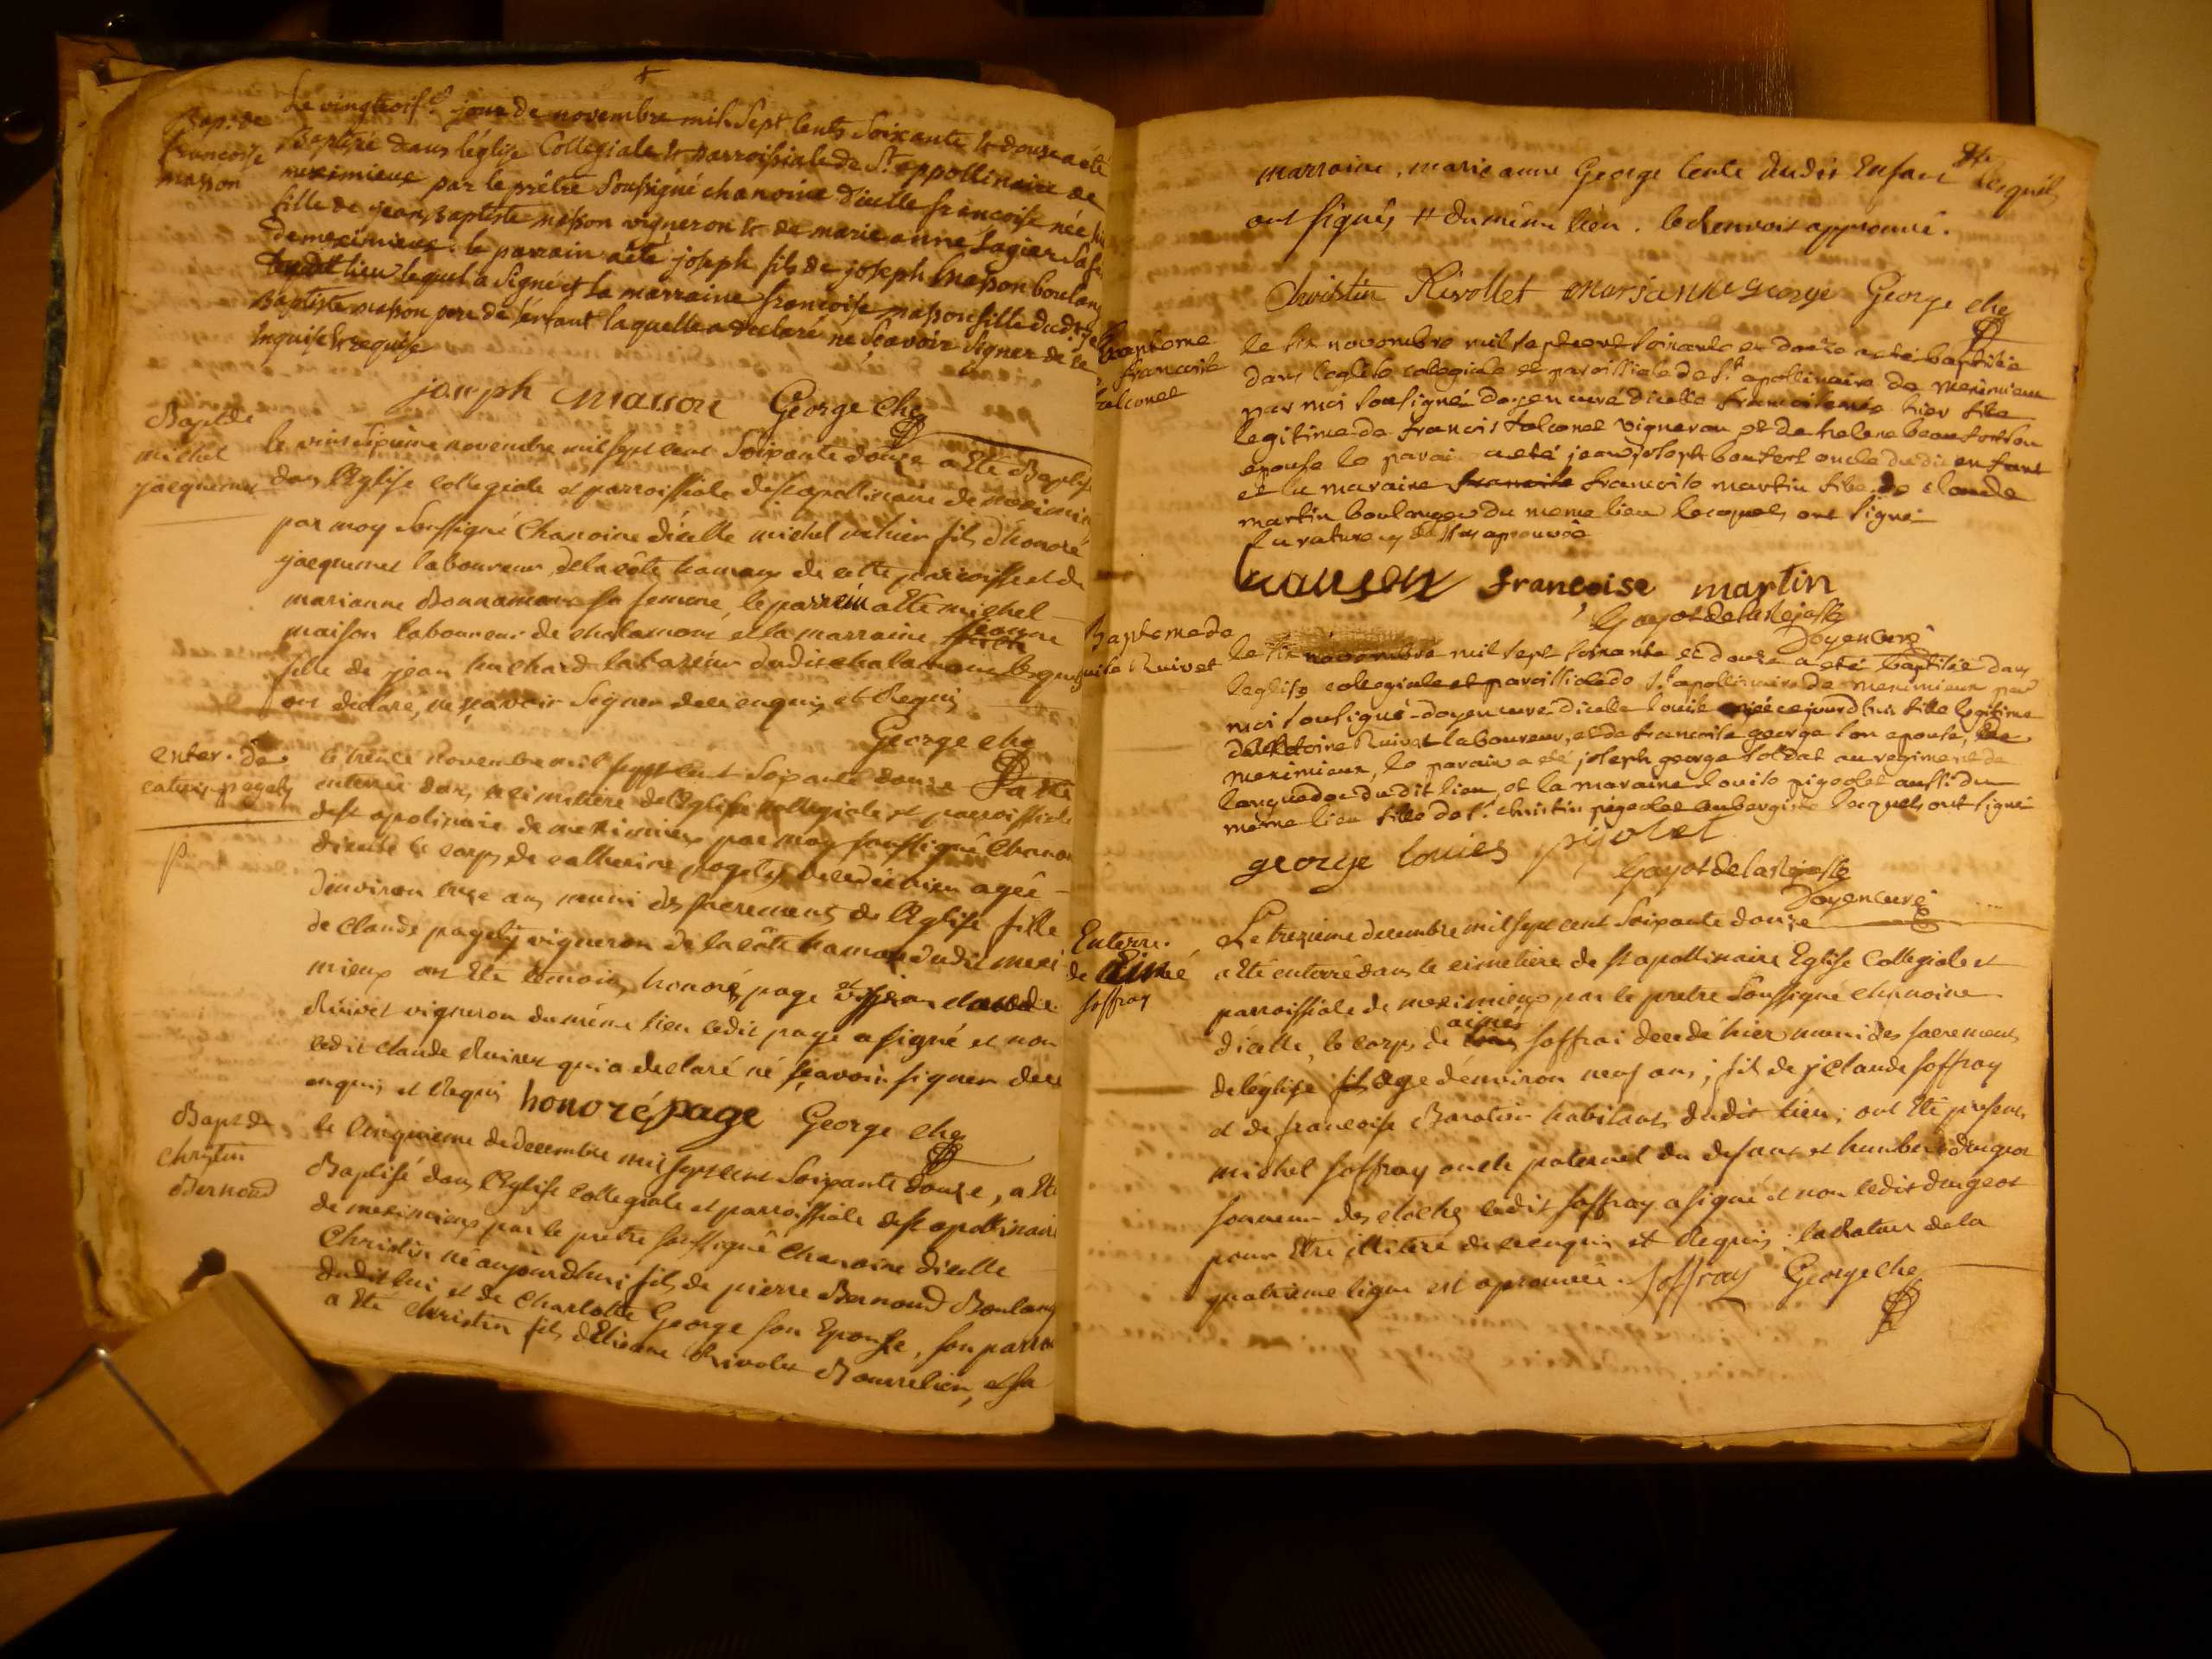 Bap. de
francoise
masson
Le vingtrois.e jour de novembre mil Sept Cents Soixante & douze a été
Baptisée dans l'église Collégiale & parroissiale de St. appollinaire de
meximieux par le prêtre Soussigné chanoine d'icelle francoise née
fille de jean Baptiste masson vigneron & de marie anne Lagier sa
de meximieux. le parrain a été joseph fils de joseph masson boulang
dudit lieu lequel a Signé et la marraine francoise masson fille dudt
Baptiste masson pere de l'enfant laquelle a declaré ne Scavoir Signer de ce
Inquise & requise
joseph masson George che
Bapt de
michel
jacquemet
le vint Sixieme novembre mil sept cent Soixante douze a Eté Baptisé
dans l'Eglise collegiale et parroissiale de st apollinaire de meximieu
par moy Soussigné Chanoine d'icelle michel fils d'honoré
jacquemet laboureur de la côte hamau de cette parroisse et de
marianne Bonnamour sa femme, le parrein a Eté michel
maison laboureur de chalamont et la marraine
fille de jean huchard dudit chalamont lesquels
ont declaré, ne sçavoir Signer de ce enquis et Requis
George che
enter. de
caterin pagely
P
le trente novembre mil sept cent Soixante douze a Eté
enterrée dans le cimetiere de l'Eglise collegiale et parroissiale
de st apolinaire de meximieux par moy soussigné Chanoi
d'icelle le corps de catherine pagely decedée hier agée
d'environ ans muni des sacrements de l'Eglise fille
de Claude pagely vigneron de la côte hamau dudit mexi
mieux ont Eté temoins honoré page et claude
Ruivet vigneron du même lieu ledit page a signé et non
ledit claude Ruivet qui a declaré ne sçavoir signer de ce
enquis et Requis honoré page George che
Bapt de
christin
Bernoud
le Cinquieme de decembre mil sept cent Soixante douze, a Eté
Baptisé dans l'Eglise collegiale et parroissiale de st apollinaire
de meximieux par le pretre soussigné Chanoine d'icelle
Christin né aujourd'hui fils de pierre Bernoud Boulang
dudit lieu et de Charlotte George son Epouse, son parrai
a Eté christin fils d'Etienne Rivolet Bourrelier, et sa
marraine, marie anne George tente dudit Enfant lesquels
ont signés # du même lieu. le Renvois approuvé.
Christin Rivollet marianne george George che
Bapteme
francoise
falconet
le six novembre mil sept cent soixante et douze a eté baptisée
dans l'eglise colegiale et paroissiale de St apollinaire de meximieux
par moi sousigné doyen curé d'icelle francoise née hier fille
legitime de francois falconet vigneron et de helene beaufort son
epouse le parain a eté jean joseph baufort oncle dudit enfant
et la maraine francoise francoise martin fille de claude
martin boulanger du meme lieu lesquels ont signé
la rature cy dessus aprouvée
francoise martin
Gayot de la Rejasse
Doyen Curé
Bapteme de
louise Ruivet
le six novembre mil sept soixante et douze a eté baptisée dans
l'eglise colegiale et paroissiale de St apollinaire de meximieux par
moi sousigné doyen curé d'icelle louise née cejourd'hui fille legitime
d'antoine Ruivet laboureur, et de francoise george son epouse, de
meximieux, le parain a eté joseph george soldat au regiment de
languedoc dudit lieu, et la maraine louise pigeolet aussi du
même lieu fille de sr christin pigeolet aubergiste lesquels ont signé
george louies pijolet
Gayot de la Rejasse
Doyen curé
Enterre.
de Aimé
soffray
Le trezieme decembre mil sept cent Soixante douze
a Eté enterré dans le cimetiere de st apollinaire Eglise Collegiale et
parroissiale de meximieux, par le pretre Soussigné chanoine
d'icelle, le corps de aimé soffrai decedé hier muni des sacrements
de l'église fils age d'environ neuf ans, fils de j Claude soffray
et de francoise Baratier habitants dudit lieu; ont Eté presents
michel soffray oncle paternel du defunt et humbert dengeot
sonneur des cloches ledit soffray a signé et non ledit dengeot
pour Etre illiteré de ce enquis et Requis. la Rature de la
quatrieme ligne est aprouvée. soffray George che